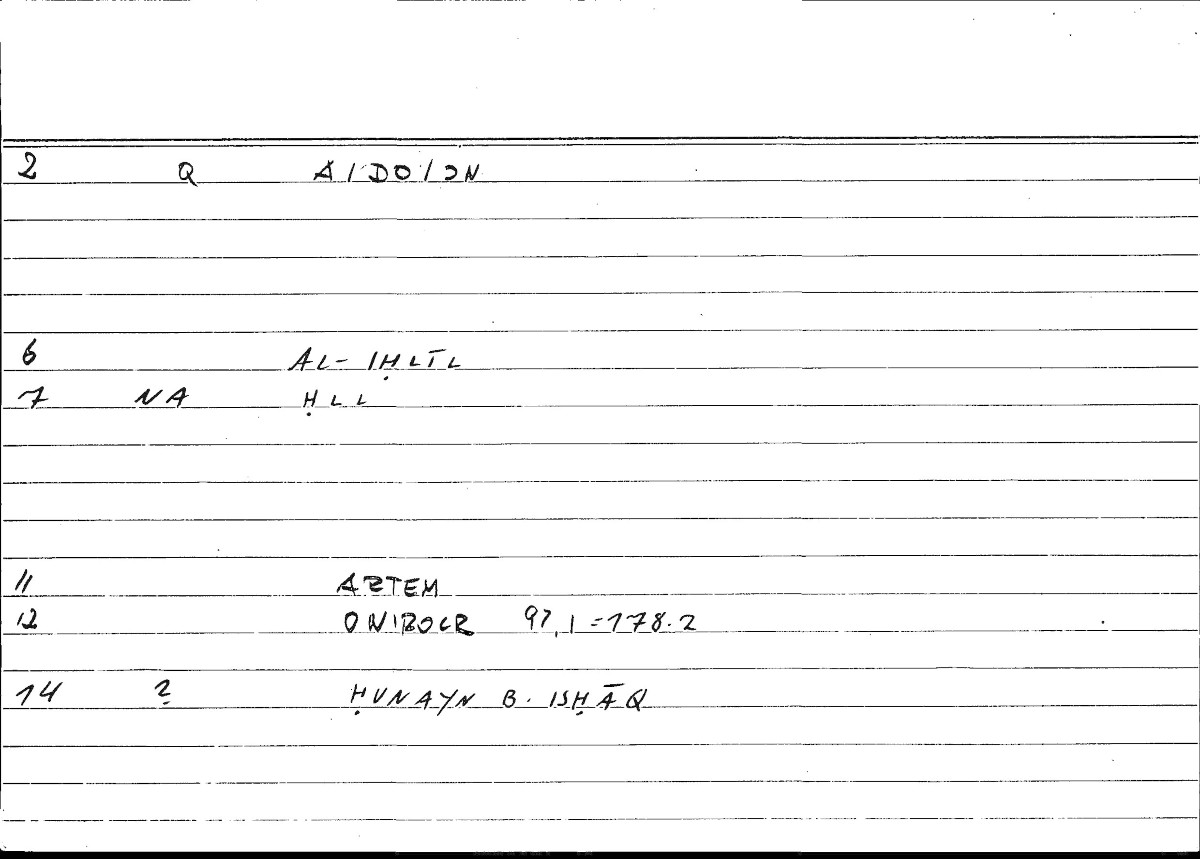 2 Q AIDOION
6 AL-IḤLĪL
7 NA ḤLL
11 ARTEM
12 ONIROCR 97,1=178.2
14 2 ḤUNAYN B. ISḤĀQ